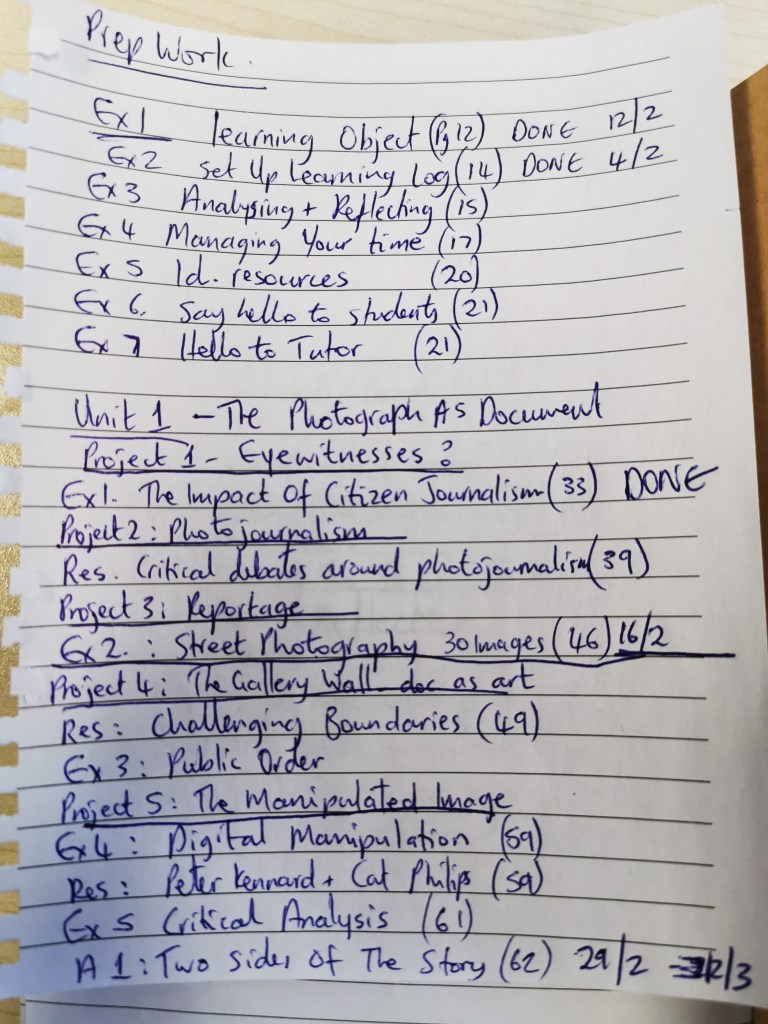 Prep Work.
Ex 1 learning Object (Pg 12) DONE 12/2
Ex 2 Set Up Learning Log (14) DONE 4/2
Ex 3 Analysing + Reflecting (15)
Ex 4 Managing Your time (17)
Ex 5 Id. resources (20)
Ex 6. Say hello to students (21)
Ex 7 Hello to Tutor (21)
Unit 1 - The Photograph As Document
Project 1 - Eyewitnesses?
Ex 1. The Impact Of Citizen Journalism (33) DONE
Project 2: Photojournalism
Res. Critical debates around photojournalism (39)
Project 3: Reportage
Ex 2. : Street Photography 30 Images (46) 16/2
Project 4: The Gallery Wall - doc as art
Res: Challenging Boundaries (49)
Ex 3: Public Order
Project 5: The Manipulated Image
Ex 4: Digital Manipulation (59)
Res: Peter Kennard + Cat Philips (59)
Ex 5 Critical Analysis (61)
A 1: Two Sides Of The Story (62) 29/2